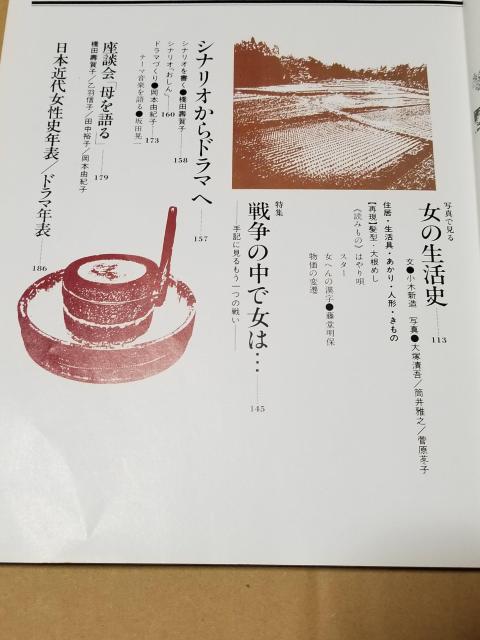 写真で見る
女の生活史……113
文●小木新造　写真●大塚清吾／筒井雅之／菅原荃子
住居・生活具・あかり・人形・きもの
【再現】髪型・大根めし
《読みもの》はやり唄
スター
女へんの漢字●藤堂明保
物価の変遷
特集
戦争の中で女は………145
――手記に見るもう一つの戦い――
シナリオからドラマへ……157
シナリオを書く●橋田壽賀子……158
シナリオ「おしん」……160
ドラマづくり●岡本由紀子……173
テーマ音楽を語る●坂田晃一
座談会「母を語る」……179
橋田壽賀子／乙羽信子／田中裕子／岡本由紀子
日本近代女性史年表／ドラマ年表……186